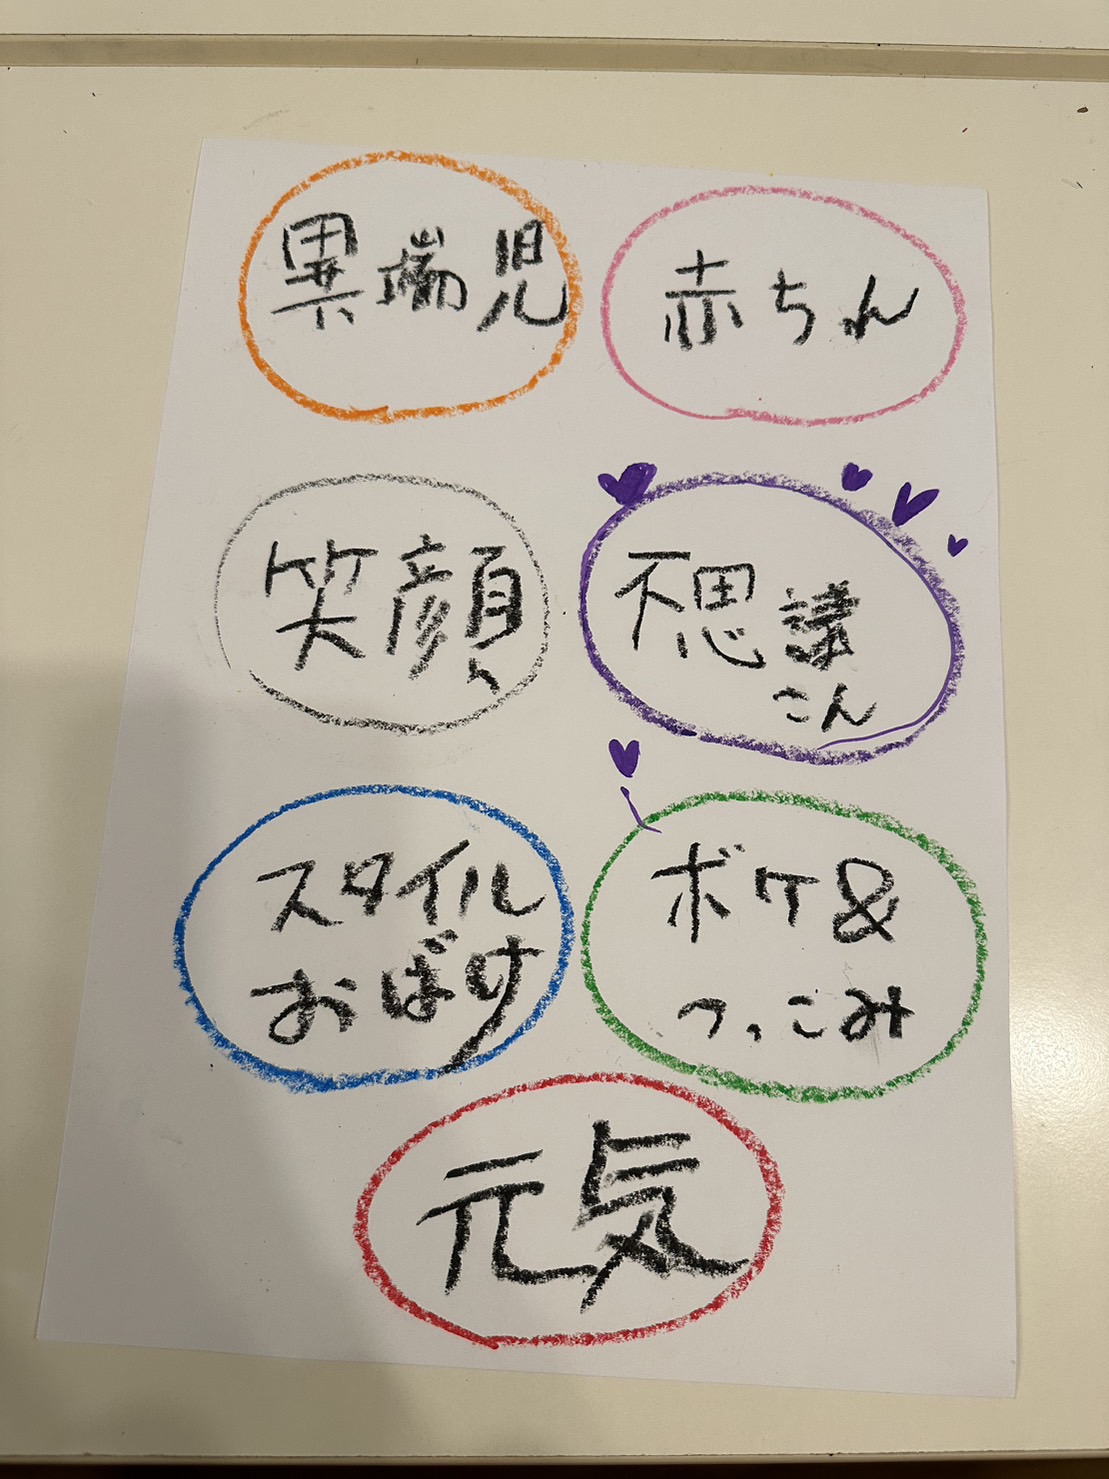 異端児
赤ちん
笑顔
不思議
こん
スタイル
おばけ
ボケ&
つっこみ
元気